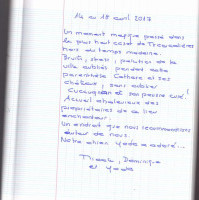 14 au 18 avril 2017
Un moment magique passé dans
le plus haut cassot de Trecoudières
hors du temps moderne.
Bruits, stress, pollution de la
ville oubliés pendant cette
parenthèse Cathare et ses
châteaux, sans oublier
Cucuugnan et son pauvre curé!
Accueil chaleureux des
propriétaires de ce lieu
enchanteur.
Un endroit que nous recommandons
autour de nous.
Notre chien Yades a adoré...
Dominique
et Yades